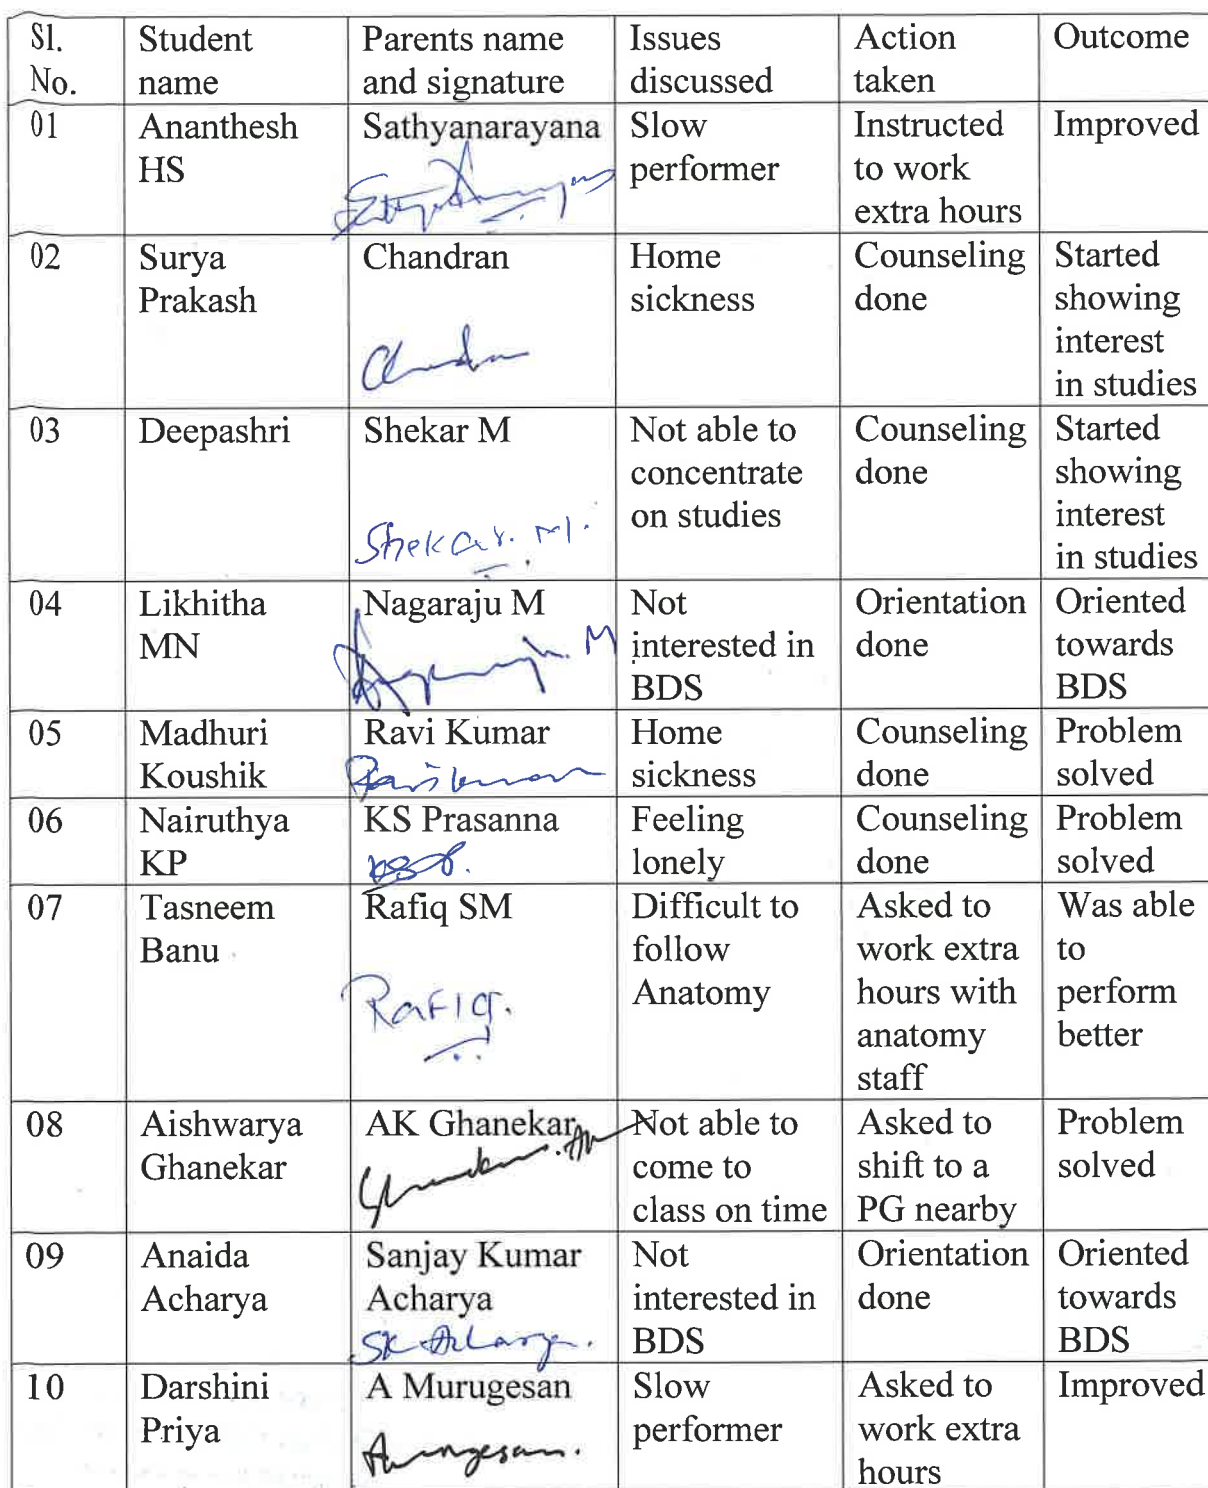 Sl. No.	Student name	Parents name and signature	Issues discussed	Action taken	Outcome
01	Ananthesh HS	Sathyanarayana	Slow performer	Instructed to work extra hours	Improved
02	Surya Prakash	Chandran	Home sickness	Counseling done	Started showing interest in studies
03	Deepashri	Shekar M Shekar. M.	Not able to concentrate on studies	Counseling done	Started showing interest in studies
04	Likhitha MN	Nagaraju M	Not interested in BDS	Orientation done	Oriented towards BDS
05	Madhuri Koushik	Ravi Kumar	Home sickness	Counseling done	Problem solved
06	Nairuthya KP	KS Prasanna	Feeling lonely	Counseling done	Problem solved
07	Tasneem Banu	Rafiq SM Rafiq.	Difficult to follow Anatomy	Asked to work extra hours with anatomy staff	Was able to perform better
08	Aishwarya Ghanekar	AK Ghanekar	Not able to come to class on time	Asked to shift to a PG nearby	Problem solved
09	Anaida Acharya	Sanjay Kumar Acharya SK Acharya.	Not interested in BDS	Orientation done	Oriented towards BDS
10	Darshini Priya	A Murugesan	Slow performer	Asked to work extra hours	Improved